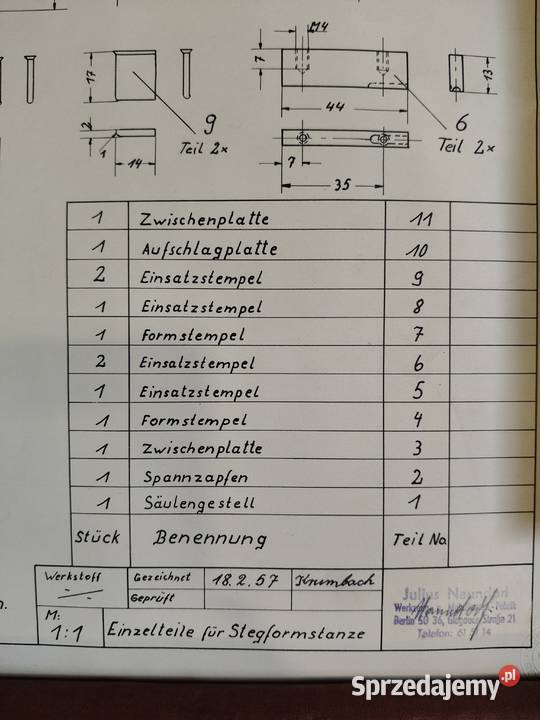 14
7
17
13
44
9
Teil 2x
6
Teil 2x
2
1
14
7
35
1 Zwischenplatte 11
1 Aufschlagplatte 10
2 Einsatzstempel 9
1 Einsatzstempel 8
1 Formstempel 7
2 Einsatzstempel 6
1 Einsatzstempel 5
1 Formstempel 4
1 Zwischenplatte 3
1 Spannzapfen 2
1 Säulengestell 1
Stück Benennung Teil No
Werkstoff Gezeichnet 18.2.57 Krumbach
Geprüft
M:
1:1 Einzelteile für Stegformstanze
Julius
Berlin SO 36, Straße 21
Telefon: 61 14
n.
Sprzedajemy.pl